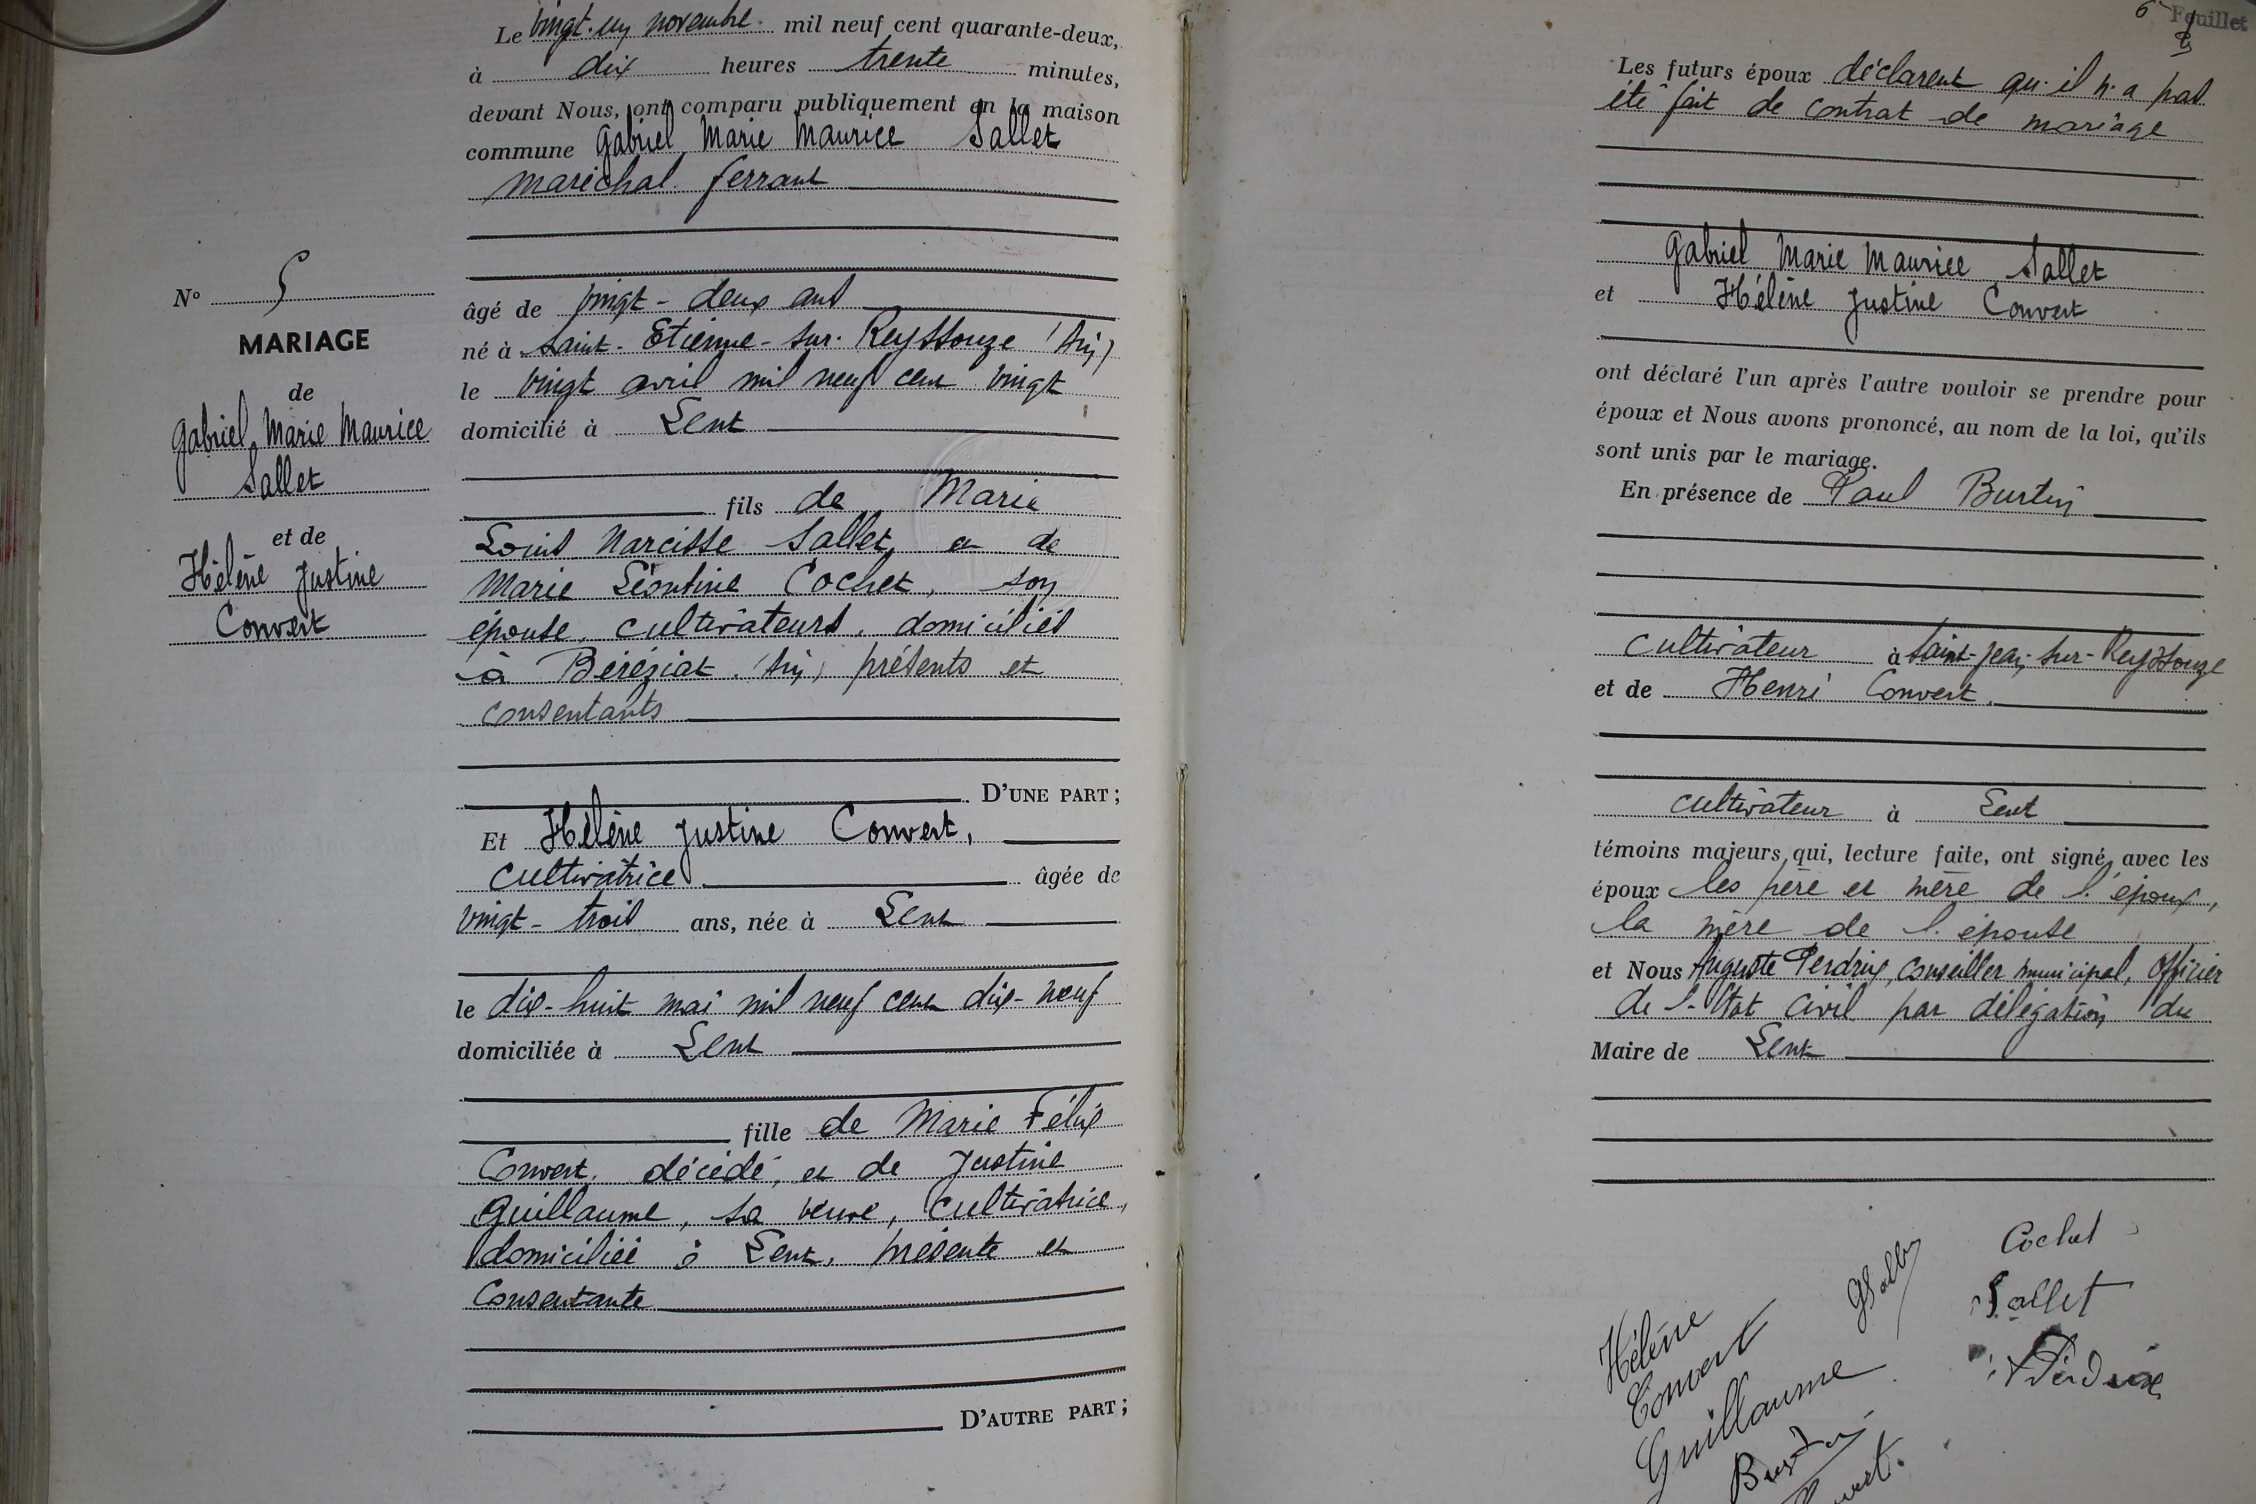 Le vingt-un novembre mil neuf cent quarante-deux,
à dix heures trente minutes,
devant Nous, ont comparu publiquement en la maison
commune Gabriel Marie Maurice Sallet
maréchal ferrant
N° 5
MARIAGE
de
Gabriel Marie Maurice
Sallet
et de
Hélène Justine
Convert
âgé de vingt-deux ans
né à Saint-Etienne-sur-Reyssouze (Ain)
le vingt avril mil neuf cent vingt
domicilié à Lent
fils de Marie
Louis Narcisse Sallet, et de
Marie Léontine Cochet, son
épouse, cultivateurs, domiciliés
à Béréziat (Ain) présents et
consentants
D'UNE PART;
Et Hélène Justine Convert,
cultivatrice âgée de
vingt-trois ans, née à Lent
le dix-huit mai mil neuf cent dix-neuf
domiciliée à Lent
fille de Marie Félix
Convert, décédé, et de Justine
Guillaume, sa veuve, cultivatrice,
domiciliée à Lent, présente et
consentante
D'AUTRE PART;
6 Feuillet
Les futurs époux déclarent qu'il n'a pas
été fait de contrat de mariage
Gabriel Marie Maurice Sallet
et Hélène Justine Convert
ont déclaré l'un après l'autre vouloir se prendre pour
époux et Nous avons prononcé, au nom de la loi, qu'ils
sont unis par le mariage.
En présence de Paul Burtin
cultivateur à Saint-Jean-sur-Reyssouze
et de Henri Convert
cultivateur à Lent
témoins majeurs qui, lecture faite, ont signé avec les
époux les père et mère de l'époux,
la mère de l'épouse
et Nous Auguste Perdrix, conseiller municipal, Officier
de l'Etat Civil par délégation du
Maire de Lent
Cochet
GSallet
Sallet
Hélène
Convert
Perdrix
Guillaume
Burtin